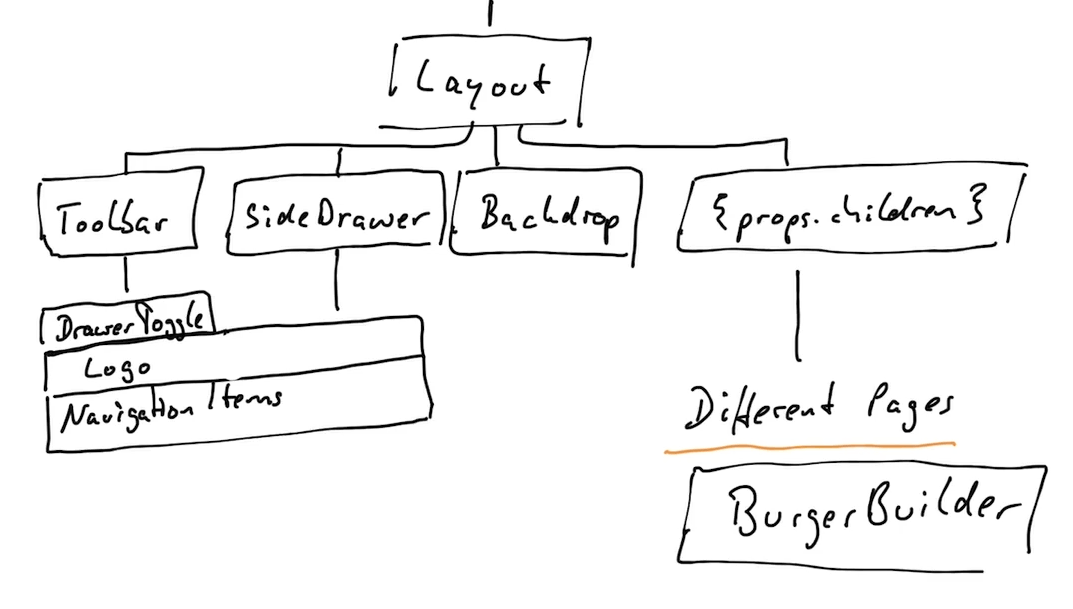 Layout
Toolbar
SideDrawer
Backdrop
{props.children}
DrawerToggle
Logo
Navigation Items
Different Pages
BurgerBuilder